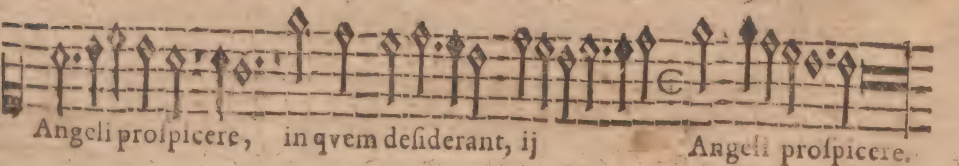 Angeli proſpicere, in qvem deſiderant, ij Angeli proſpicere.